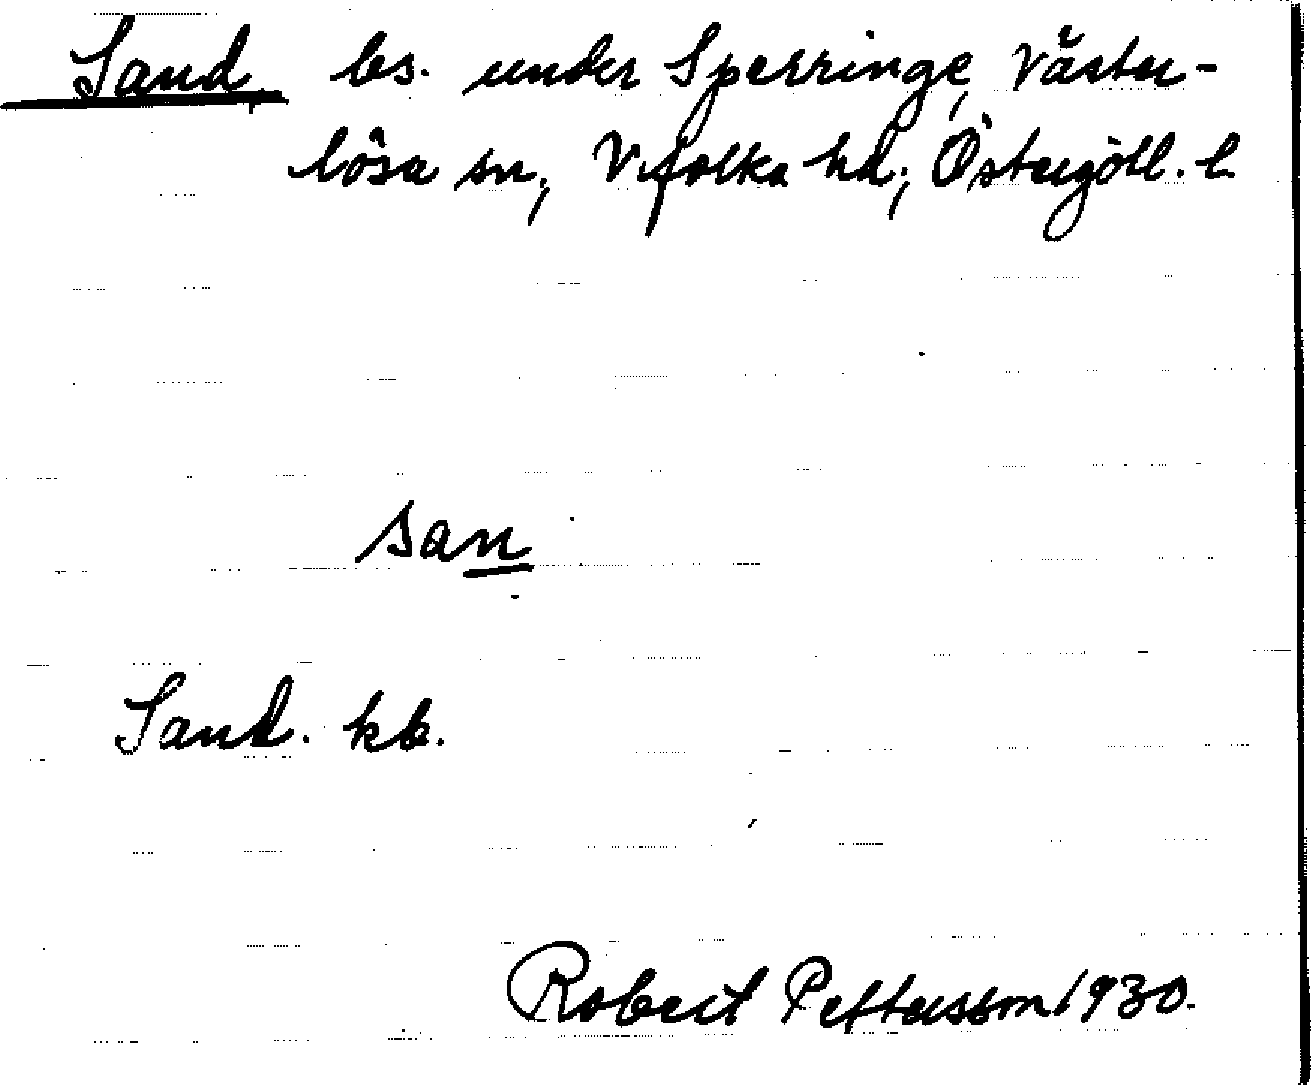 Sand, bs. under Sperringe, Väster-
lösa sn, Vifolka hd, Östergötl. l.
san
Sand. kb.
Robert Pettersson 1930.